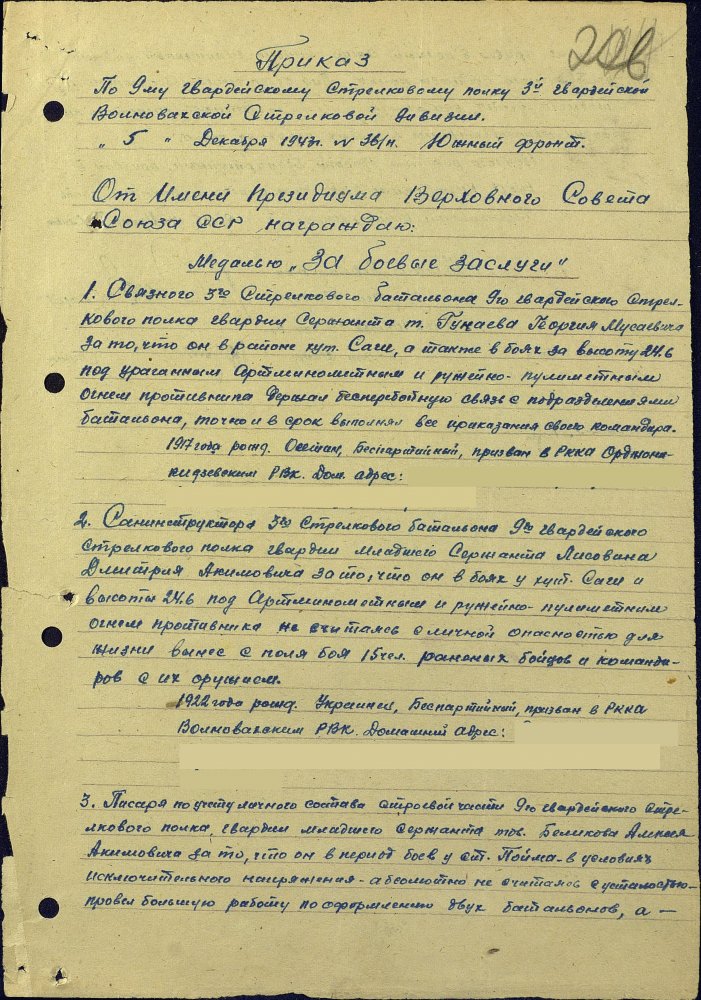 206
Приказ
По 9му гвардейскому Стрелковому полку 3й гвардейской
Волновахской Стрелковой дивизии.
"5" Декабря 1943г. № 36/н. Южный фронт.
От Имени Президиума Верховного Совета
Союза ССР награждаю:
Медалью „За боевые заслуги"
1. Связного 3го Стрелкового батальона 9го гвардейского Стрел-
кового полка гвардии Сержанта т. Гунаева Георгия Мусаевича
за то, что он в районе хут. Саги, а также в боях за высоту 24.6
под ураганным Артминометным и ружейно-пулиметным
огнем противника держал бесперебойную связь с подразделениями
батальона, точно и в срок выполнял все приказания своего командира.
1917 года рожд. Осетин, Беспартийный, призван в РККА Орджони-
кидзевским РВК. Дом. адрес:
2. Санинструктора 3го Стрелкового батальона 9го гвардейского
стрелкового полка гвардии младшего Сержанта Лисовина
Дмитрия Акимовича за то, что он в боях у хут. Саги и
высоты 24.6 под Артминометным и ружейно-пулиметним
огнем противника не считаясь с личной опасностью для
жизни вынес с поля боя 15 чел. раненых бойцов и команди-
ров с их оружием.
1922 года рожд. Украинец, Беспартийний, призван в РККА
Волновахским РВК. Домашний адрес:
3. Писаря по учету личного состава строевой части 9го гвардейского Стре-
лкового полка, гвардии младшего Сержанта тов. Беликова Алексея
Акимовича за то, что он в период боев у ст. Пойма - в условиях
исключительного напряжения - абсолютно не считаясь с усталостью -
провел большую работу по оформлению двух батальонов, а —